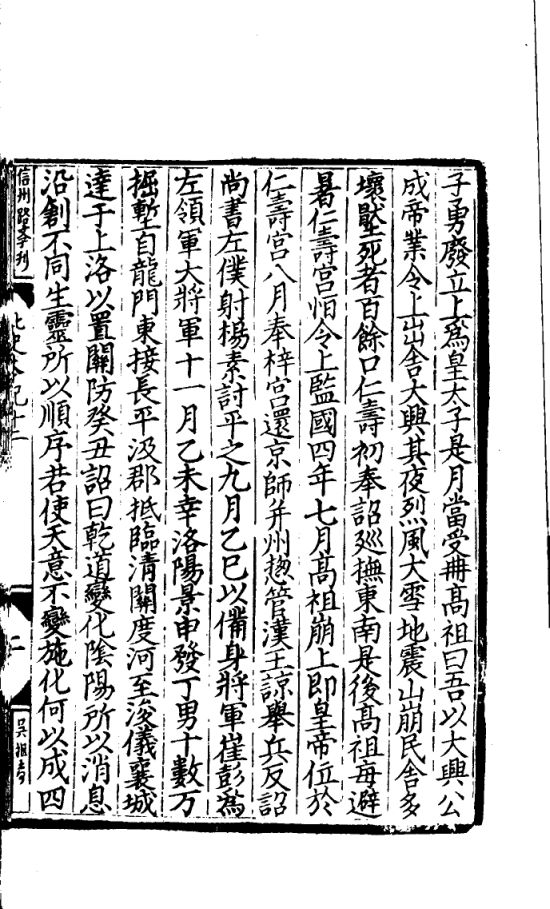 子勇廢立上爲皇太子是月當受冊髙祖曰吾以大興公
成帝業令上出舎大興其夜烈風大雪地震山崩民舎多
壞壓死者百餘口仁壽初奉詔廵撫東南是後髙祖每避
暑仁壽宮恒令上監國四年七月髙祖崩上即皇帝位於
仁壽宮八月奉梓宮還京師并州揔管漢王諒舉兵反詔
尚書左僕射楊素討平之九月乙巳以備身將軍崔彭爲
左領軍大將軍十一月乙未幸洛陽景申發丁男十數万
掘塹自龍門東接長平汲郡抵臨清關度河至浚儀襄城
達于上洛以置關防癸丑詔曰乾道變化陰陽所以消息
沿創不同生靈所以順序若使天意不變施化何以成四
信州路
北史本紀十二
二